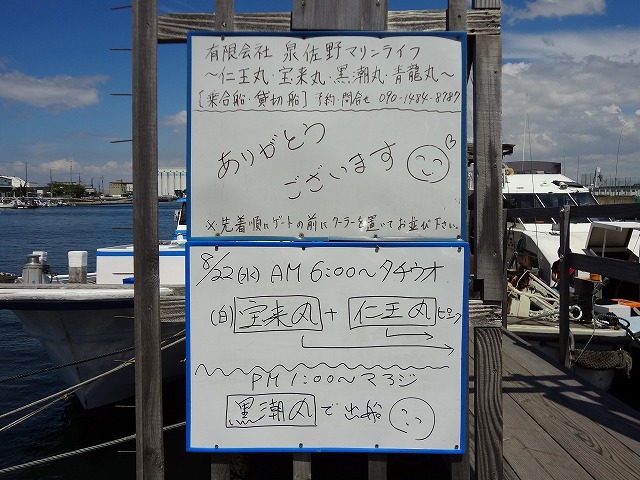 有限会社 泉佐野マリンライフ
～仁王丸・宝来丸・黒潮丸・青龍丸～
[乗合船・貸切船] 予約・問合せ 090-1484-8787
ありがとう
ございます
※先着順にゲートの前にクーラーを置いてお並び下さい。
8/22(水) AM 6:00～タチウオ
(白) 宝来丸 + 仁王丸 ピンク
PM 1:00～マアジ
黒潮丸で出船